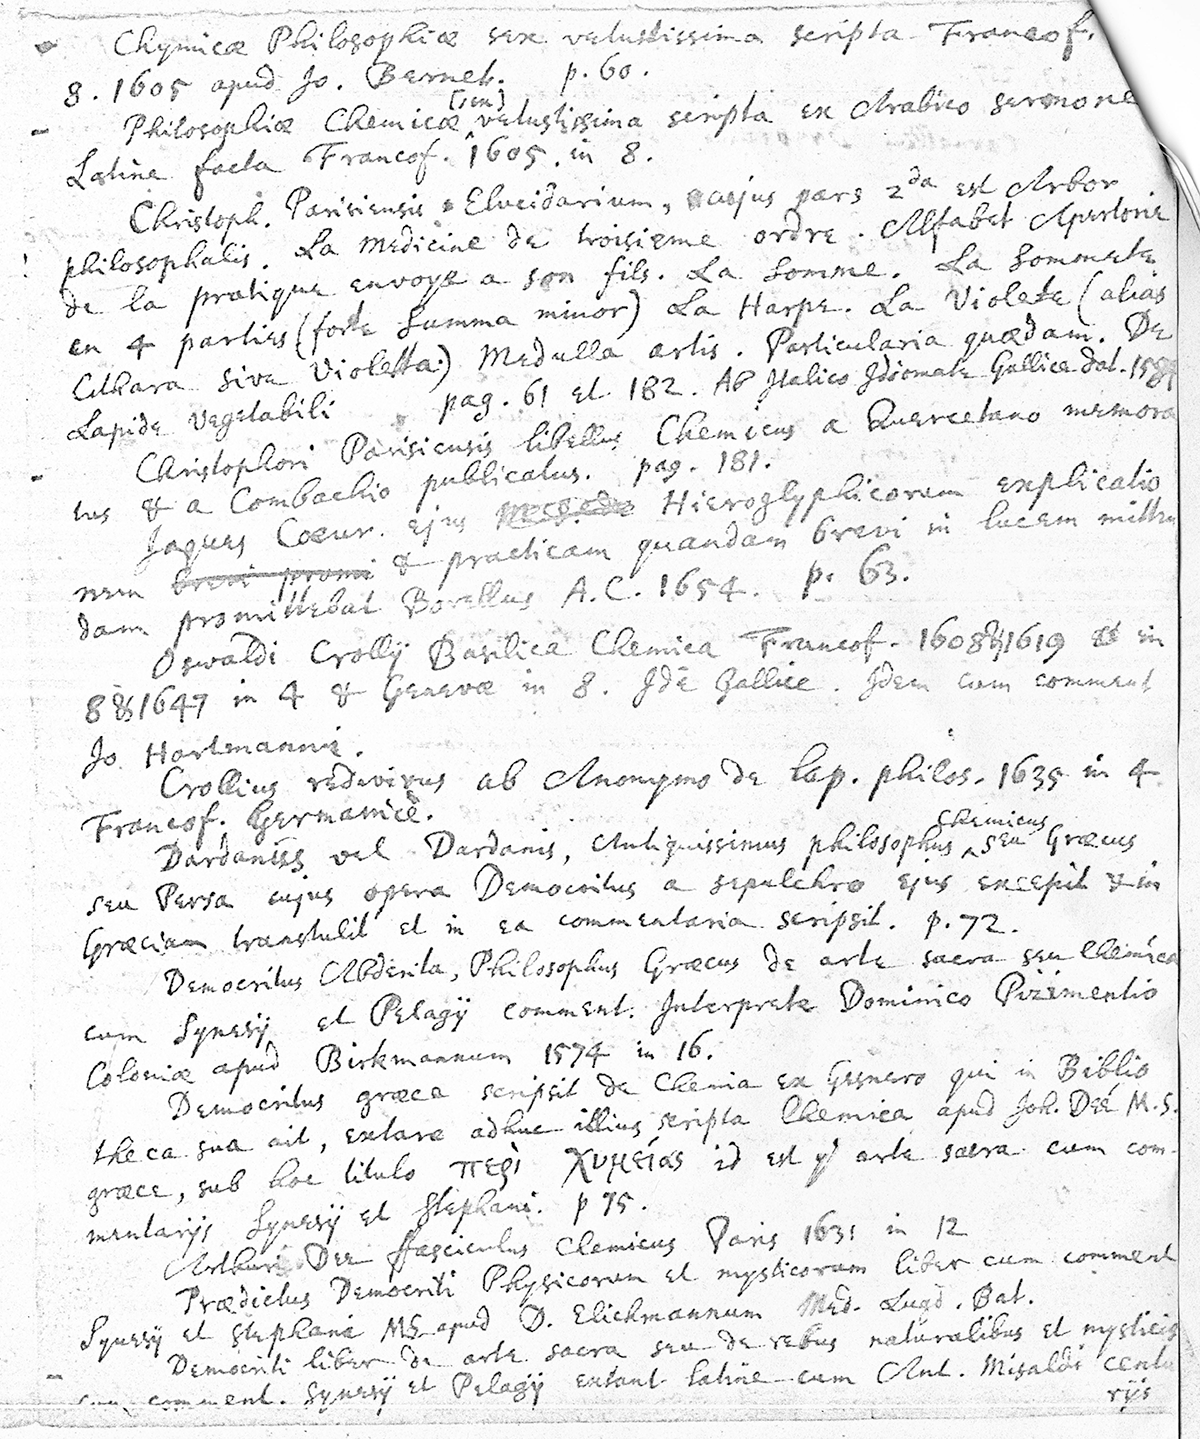 Chymicæ Philosophiæ sex vetustissima scripta Francof.
8. 1605 apud Jo. Bernet. p. 60.
Philosophiæ Chemicæ [sex] vetustissima scripta ex Arabico sermone
Latine facta Francof. 1605. in 8.
Christoph. Parisiensis Elucidarium, cujus pars 2da est Arbor
philosophalis. La medicine de troisieme ordre. Alfabet Apertorie
de la pratique envoye a son fils. La Somme. La Sommete
en 4 parties (forte Summa minor) La Harpe. La Violete (alias
Cithara sive Violetta.) Medulla artis. Particularia quædam. De
Lapide Vegetabili pag. 61 et 182. Ab Italico Idiomate Gallice dat.
Christophori Parisiensis libellus Chemicus a Quercetano memora
tus & a Combachio publicatus. pag. 181.
Jaques Cœur. ejus Hieroglyphicorum explicatio
nem brevi promi & practicam quandam brevi in lucem mitten
dam promittebat Borellus A.C. 1654. p. 63.
Oswaldi Crollij Basilica Chemica Francof. 1608 & 1619 in
8 & 1647 in 4 & Genevæ in 8. Idē Gallice. Idem cum comment
Jo Hartmanni.
Crollius redivivus ab Anonymo de lap. philos. 1635 in 4
Francof. Germanicè.
Dardanus vel Dardanis, Antiquissimus philosophus Chemicus seu Græcus
seu Persa cujus opera Democritus a sepulchro ejus excepit & in
Græciam transtulit et in ea commentaria scripsit. p. 72.
Democritus Abderita, Philosophus Græcus de arte sacra seu Chemica
cum Synesij et Pelagij comment. Interprete Dominico Pizimentio
Coloniæ apud Birkmannum 1574 in 16.
Democritus græce scripsit de Chemia ex Gesnero qui in Biblio
theca sua ait, extare adhuc illius scripta Chemica apud Joh. Dee M.S.
græce, sub hoc titulo περὶ χυμείας id est arte sacra cum com-
mentarijs Synesij et Stephani. p 75.
Arthuri Dee fasciculus Chemicus Paris 1631 in 12
Prædictus Democriti Physicorum et mysticorum liber cum comment
Synesij et Stephani MS apud D. Elichmannum Med. Lugd. Bat.
Democriti liber de arte sacra seu de rebus naturalibus et mysticis
cum comment. Synesij et Pelagij extant latine cum Ant. Misaldi centu
rijs